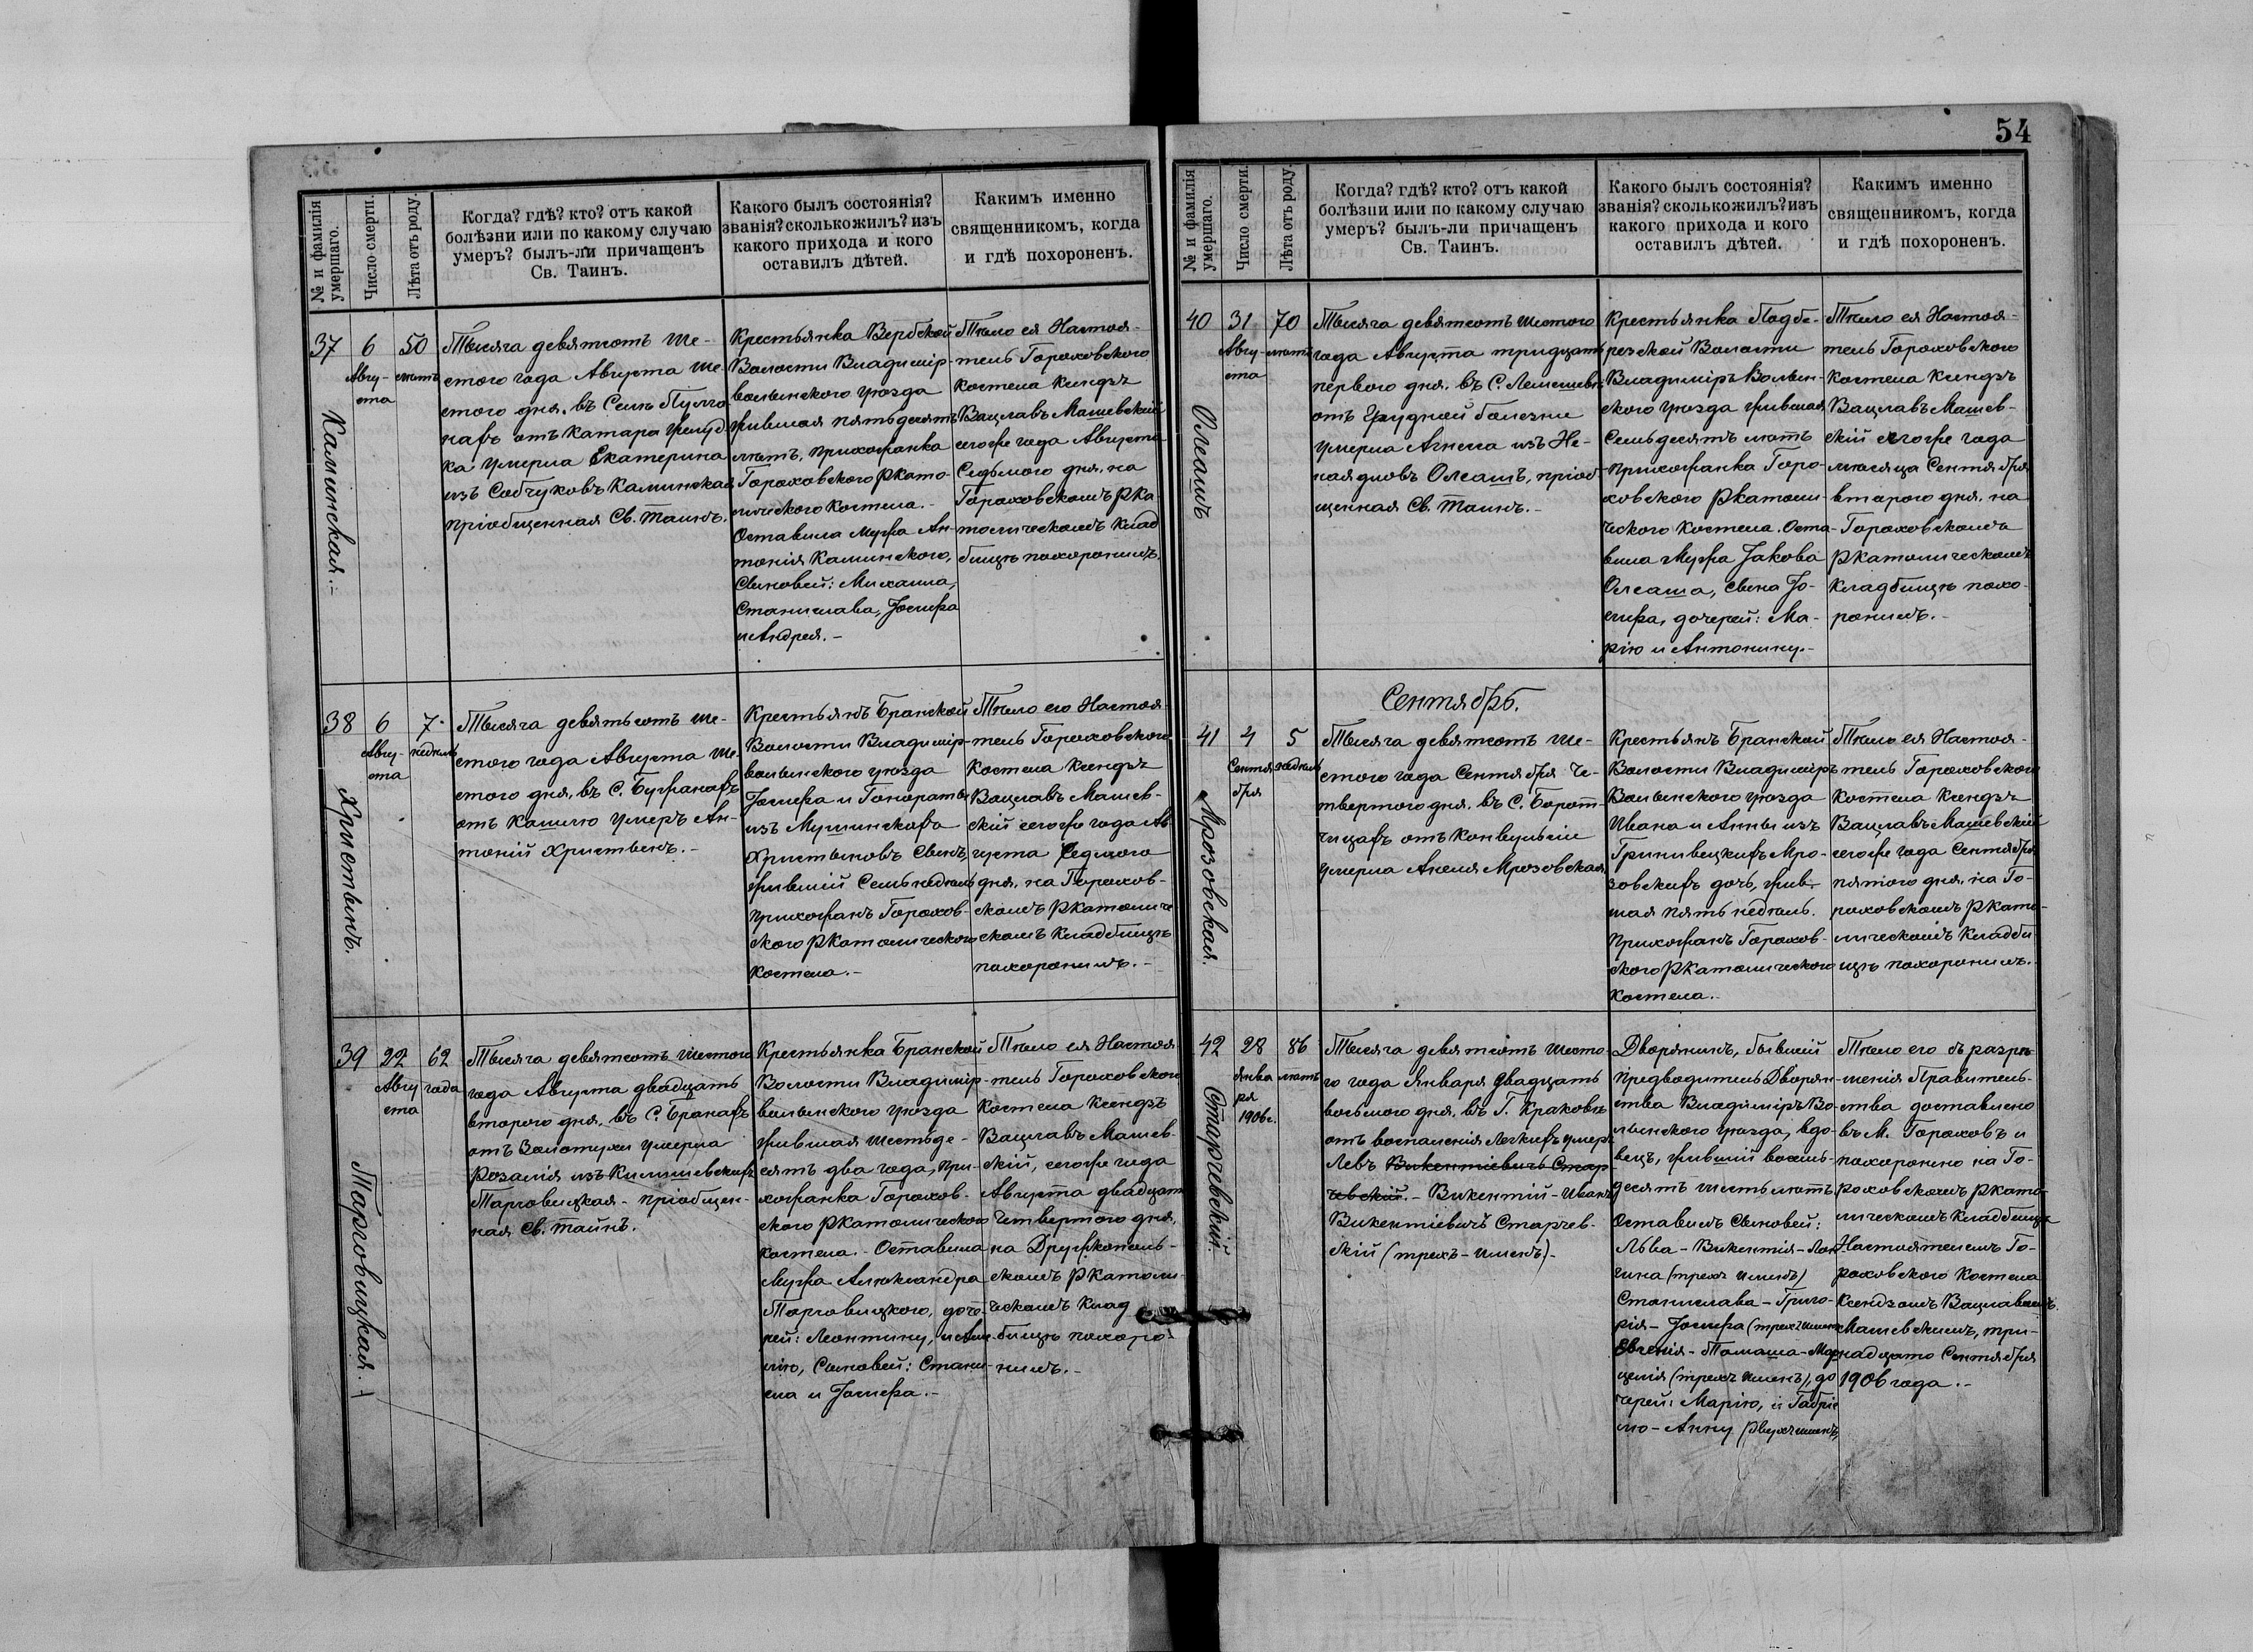 54
№ и фамилія умершаго.
Число смерти.
Лѣта отъ роду.
Когда? гдѣ? кто? отъ какой
болѣзни или по какому случаю
умеръ? былъ-ли причащенъ
Св. Таинъ.
Какого былъ состоянія?
званія? сколько жилъ? изъ
какого прихода и кого
оставилъ дѣтей.
Какимъ именно
священникомъ, когда
и гдѣ похороненъ.
37
6
Авгу-
ста
50
лѣтъ
Каминская.
Тысяча девятсотъ ше-
стого года Августа ше-
стого дня, въ Селѣ
отъ катара желуд-
ка умерла Екатерина
изъ Собчуковъ Каминская
пріобщенная Св. Таинъ.
Крестьянка Вербской
Волости Владимір-
волынского уѣзда
жившая пятьдесятъ
лѣтъ, прихожанка
Гороховского Ркато-
лическаго Костела.-
Оставила мужа Ан-
тонія Каминского,
Сыновей: Михаила,
Станислава, Іосифа
и Андрея.-
Тѣло ея Настоя-
тель Гороховского
костела Ксендзъ
Вацлавъ Машевскій
сегоже года Августа
Седьмого дня, на
Гороховскомъ Рка-
толическомъ Клад
бищѣ похоронилъ.
38
6
Авгу-
ста
7
недѣль
Христынъ.
Тысяча девятьсотъ ше-
стого года Августа ше-
стого дня, въ С. Бужанахъ
отъ кашлю умеръ Ан-
тоній Христынъ.-
Крестьянъ Бранской
Волости Владимір-
волынского уѣзда
Іосифа и Гонораты
изъ
Христыновъ Сынъ,
жившій Семь недѣль
прихожанъ Горохов-
ского Ркатолического
Костела.-
Тѣло его Настоя-
тель Гороховского
Костела Ксендзъ
Вацлавъ Машев-
скій сегоже года Ав
густа Седмого
дня, на Горохов-
скомъ Ркатоличе
скомъ Кладбищѣ
похоронилъ.-
39
22
Авгу
ста
62
года
Тарговицкая.
Тысяча девятсотъ шестого
года Августа двадцать
второго дня, въ С. Бранахъ
отъ Золотухи умерла
Розалія изъ Килишевскихъ
Тарговицкая - пріобщен-
ная Св. Таинъ.
Крестьянка Бранской
Волости Владимір-
волынского уѣзда
жившая шестьде-
сятъ два года, при-
хожанка Горохов-
ского Ркатолического
костела.- Оставила
Мужа Александра
Тарговицкого, доче-
рей: Леонтину, и Аме-
лію, Сыновей: Стани-
сла и Іосифа.-
Тѣло ея Настоя
тель Гороховского
костела ксендзъ
Вацлавъ Машев-
скій, сегоже года
Августа двадцать
Четвертого дня,
на Дружкополь-
скомъ Ркатоли-
ческомъ Клад
бищѣ похоро-
нилъ.-
№ и фамилія умершаго.
Число смерти.
Лѣта отъ роду.
Когда? гдѣ? кто? отъ какой
болѣзни или по какому случаю
умеръ? былъ-ли причащенъ
Св. Таинъ.
Какого былъ состоянія?
званія? сколько жилъ? изъ
какого прихода и кого
оставилъ дѣтей.
Какимъ именно
священникомъ, когда
и гдѣ похороненъ.
40
31
Авгу-
ста
70
лѣтъ
Олеашъ
Тысяча девятсотъ шестого
года Августа тридцать
первого дня, въ С.
отъ Грудной болезни
умерла Агнеса изъ Не-
наядловъ Олеашъ, пріоб-
щенная Св. Таинъ.-
Крестьянка Подбе-
резской Волости
Владиміръ Волын-
ского уѣзда жившая
Семьдесятъ лѣтъ
прихожанка Горо-
ховского Ркатоли-
ческого костела. Оста-
вила Мужа Іакова
Олеаша, Сына Іо-
сифа, дочерей: Ма-
рію и Антонину.-
Тѣло ея Настоя-
тель Гороховского
Костела Ксендзъ
Вацлавъ Машев-
скій сегоже года
мѣсяца Сентября
второго дня, на
Гороховскомъ
Ркатолическомъ
Кладбищѣ похо-
ронилъ.-
Сентябрь.
41
4
Сентя
бря
5
недѣль
Мрозовская.
Тысяча девятсотъ ше-
стого года Сентября че-
твертого дня, въ С. Борят-
чицахъ отъ конвульсіи
умерла Анеля Мрозовская
Крестьянъ Бранской
Волости Владиміръ
Волынского уѣзда
Ивана и Анны изъ
Гриневецкихъ Мро-
зовскихъ дочь, жив-
шая пять недѣль.
прихожанъ Горохов-
ского Ркатолического
Костела.
Тѣло ея Настоя-
тель Гороховского
Костела Ксендзъ
Вацлавъ Машевскій
сегоже года Сентября
пятого дня, на Го-
роховскомъ Ркато-
лическомъ Кладби
щѣ похоронилъ.
42
28
Янва
ря
1906г.
86
лѣтъ
Старчевскій.
Тысяча девятсотъ шесто-
го года Января двадцать
восьмого дня, въ Г. Краковѣ
отъ воспаленія легкихъ умеръ
Левъ Викентіевичъ Стар
чевскій.- Викентій - Иванъ
Викентіевичъ Старчев-
скій (трехъ - именъ).-
Дворянинъ, бывшій
предводитель Дворян-
ства Владиміръ Во-
лынского уѣзда, вдо-
вецъ, жившій восемь-
десятъ шесть лѣтъ
Оставилъ Сыновей:
Льва - Викентія - Лон-
гина (трехъ именъ)
Станислава - Григо-
рія - Іосифа (трехъ именъ
Евгенія - Томаша - Мар
целія (трехъ именъ), до
черей: Марію, и Габріе
лю - Анну (двухъ именъ)
Тѣло его съ разрѣ-
шенія Правитель-
ства доставлено
въ М. Гороховъ и
похоронено на Го-
роховскомъ Ркато-
лическомъ Кладбищѣ
Настоятелемъ Го-
роховского Костела
Ксендзомъ Вацлавомъ
Машевскимъ, три-
надцато Сентября
1906 года.-